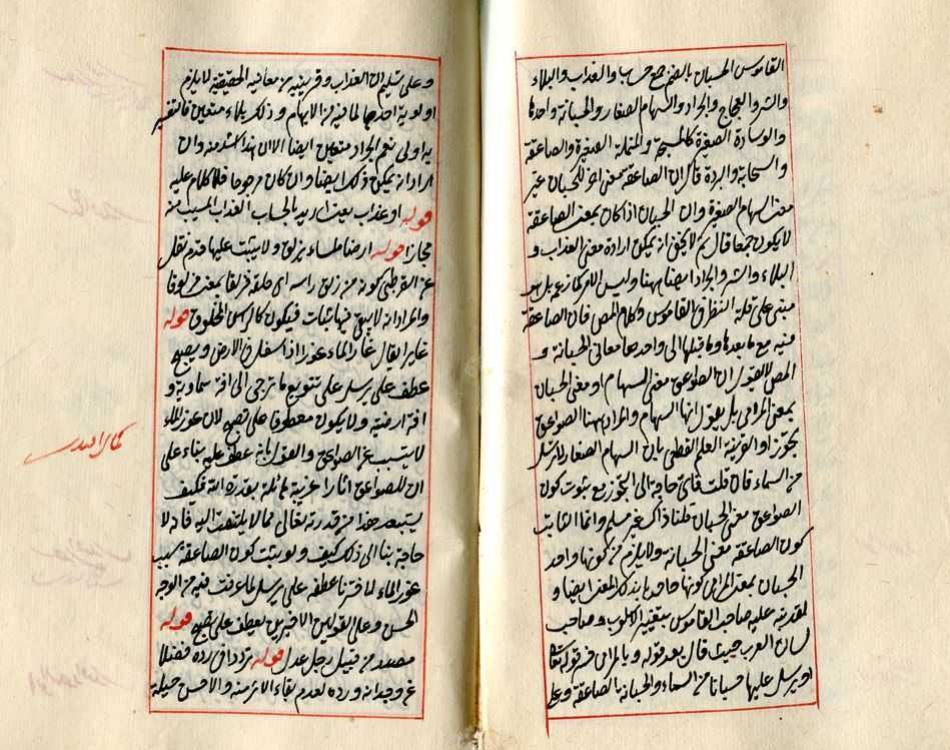 القاموس الحسبان بالضم جمع حساب والعذاب والبلاء
والشر والعجاج والجراد والسهام الصغار والحسبانة واحدها
والوسادة الصغيرة كالمحسبة والنملة الصغيرة والصاعقة
والسحابة والبردة فان الصاعقة معنى اخر للحسبان غير
معنى السهام الصغيرة وان الحسبان اذا كان بمعنى الصاعقة
لا يكون جمعا قال ثم لا يخفى انه يمكن ارادة معنى العذاب و
البلاء والشر والجراد ايضا ههنا وليس الامر كما زعم بل هو
مبنى على قلة النظر في القاموس وكلام المص فان الصاعقة
فيه مع ما بعدها وما قبلها الى واحدها معانى الحسبانة و
المص لا يقول ان الصواعق معنى السهام او معنى الحسبان
بمعنى المرامى بل يقول انها السهام والمراد بها الصواعق
تجوزا والقرينة العلم القطعى بان السهام الصغار لا ترسل
من السماء فان قلت فاى حاجة الى التجوز مع ثبوت كون
الصواعق معنى الحسبان قلنا ذاك غير مسلم وانما الثابت
كون الصاعقة معنى الحسبانة ولا يلزم من كونها واحد
الحسبان بمعنى المرامى كونها واحدها بذلك المعنى ايضا و
صاحب القاموس بتغيير الاسلوب وصاحب
لسان العرب حيث قال بعد قوله وبالمرامى فسر قوله تعالى
او يرسل عليها حسبانا من السماء والحسبانة الصاعقة وعلى
وعلى تسليم ان العذاب وقرينيه من معانيه الحقيقية لا يلزم
اولوية احدها لما فيه من الابهام وذلك بلاء متعين فالتفسير
به اولى نعم الجراد متعين ايضا الا ان هذا اشد منه وان
اراد انه يمكن ذلك ايضا وان كان مرجوحا فلا كلام عليه
قوله او عذاب بعث اريد بالحساب العذاب المسبب منه
مجازا قوله ارضا ملساء يزلق ولا يثبت عليها قدم نقل
عن القرطبى كونه من زلق راسه اى حلقه فزلقا بمعنى مزلوقا
والمراد انه لا يبقى فيها نبات فيكون كالراس المحلوق قوله
غايرا يقال غار الماء غورا اذا سفل في الارض ويصبح
عطف على يرسل على تنويع ما ترجى الى افة سماوية و
افة ارضية ولا يكون معطوفا على تصبح لان غور الماء
لا يتسبب عن الصواعق والقول بانه عطف عليه بناء على
ان للصواعق اثارا غريبة هائلة بقدرة الله فكيف
يستبعد هذا من قدرته تعالى مما لا يلتفت اليه فانه لا
حاجة بنا الى ذلك كيف ولو ثبت كون الصاعقة سبب
غور الماء لما ضرنا عطفه على يرسل لما عرفت فيه من الوجه
الحسن وعلى القولين الاخيرين يعطف على تصبح قوله
مصدر من قبيل رجل عدل قوله ترددا في رده فضلا
عن وجدانه ورده لعدم بقاء الاثر منه والاحسن حيلة